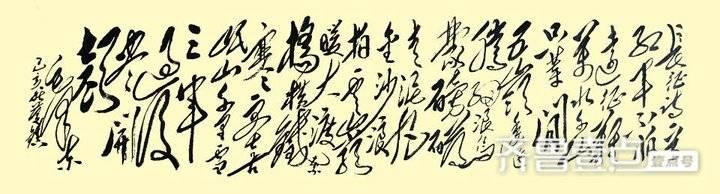 长征诗一首
红军不怕
远征难
万水千山
只等闲
五岭逶迤
腾细浪乌
蒙磅礴
走泥丸
金沙浪
拍云崖
暖大渡
桥横铁索
寒更喜
岷山千里雪
三军
过后
尽开
颜
毛泽东
齐鲁壹点
壹点号